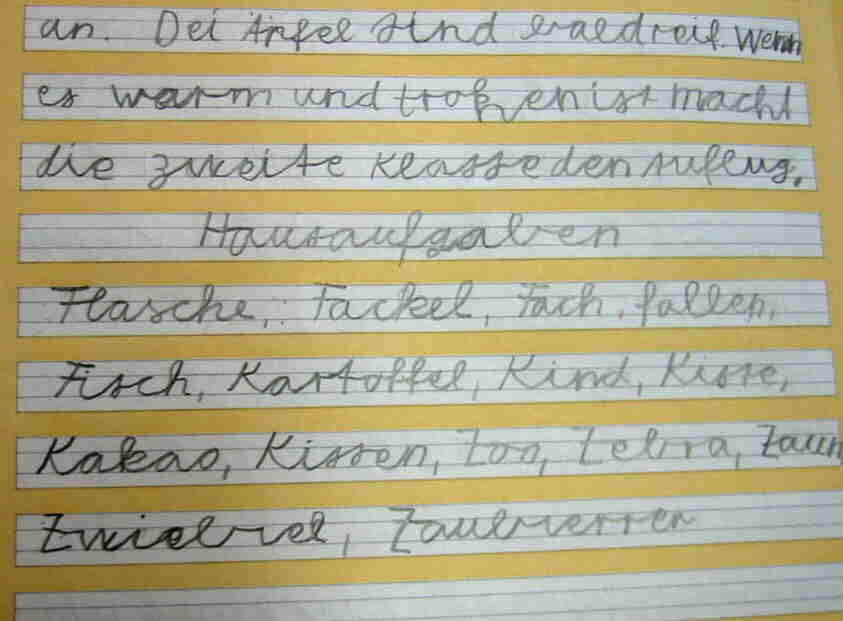 an. Dei Äpfel sind baldreif. Wenn
es warm und troßen ist macht
die zweite Klasse den Auflug.
Hausaufgaben
Flasche, Fackel, Fach, fallen,
Fisch, Kartoffel, Kind, Kiste,
Kakao, Kissen, Zoo, Zebra, Zaun
Zwiebel,